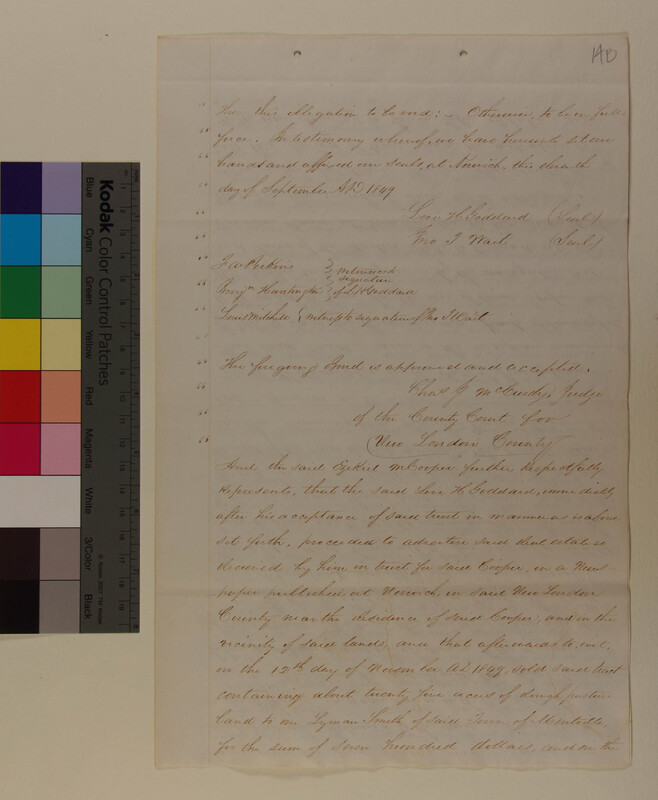 140
then this obligation to be void: - Otherwise, to be in full
force. In testimony whereof, we have hereunto set our
hands and affixed our seals, at Norwich, this
day of September A.D. 1849
Levi H. Goddard (Seal)
Jno T. Wait (Seal)
F. W. Perkins } witnesses to
signature
Benjn Huntington } of L. H. Goddard
Louis Mitchell { witness to signature of Jno T. Wait
The foregoing Bond is approved and accepted.
Chas J. McCurdy, Judge
of the County Court for
New London County
And the said Ezekiel McCooper further respectfully
represents, that the said Levi H. Goddard, immediately
after his acceptance of said trust in manner as is above
set forth, proceeded to advertise said real estate so
received by him in trust for said Cooper, in a News-
paper published at Norwich, in said New London
County near the residence of said Cooper, and in the
vicinity of said lands, and that afterwards to wit,
on the 12th day of November A.D. 1849, sold said tract
containing about twenty five acres of rough pasture
land to one Lyman Smith of said Town of Montville,
for the sum of seven hundred dollars, and on the
Kodak Color Control Patches
Blue
Cyan
Green
Yellow
Red
Magenta
White
3/Color
Black